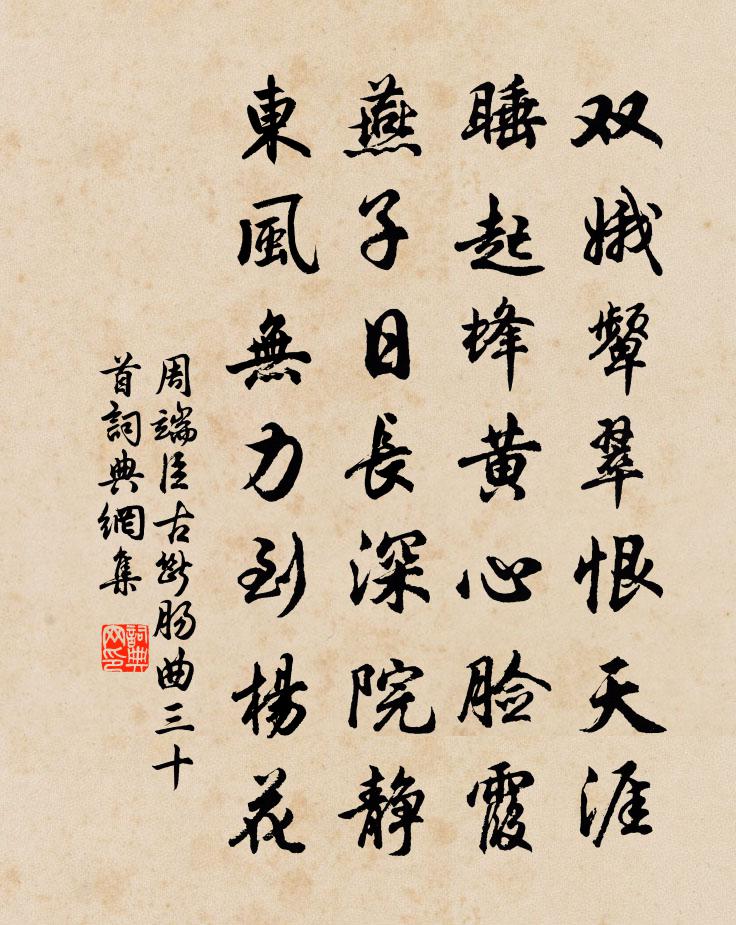 双娥颦翠恨天涯
睡起蜂黄心脸霞
燕子日長深院静
東風無力到楊花
周端臣古断肠曲三十
首詞典網集
詞典
网印